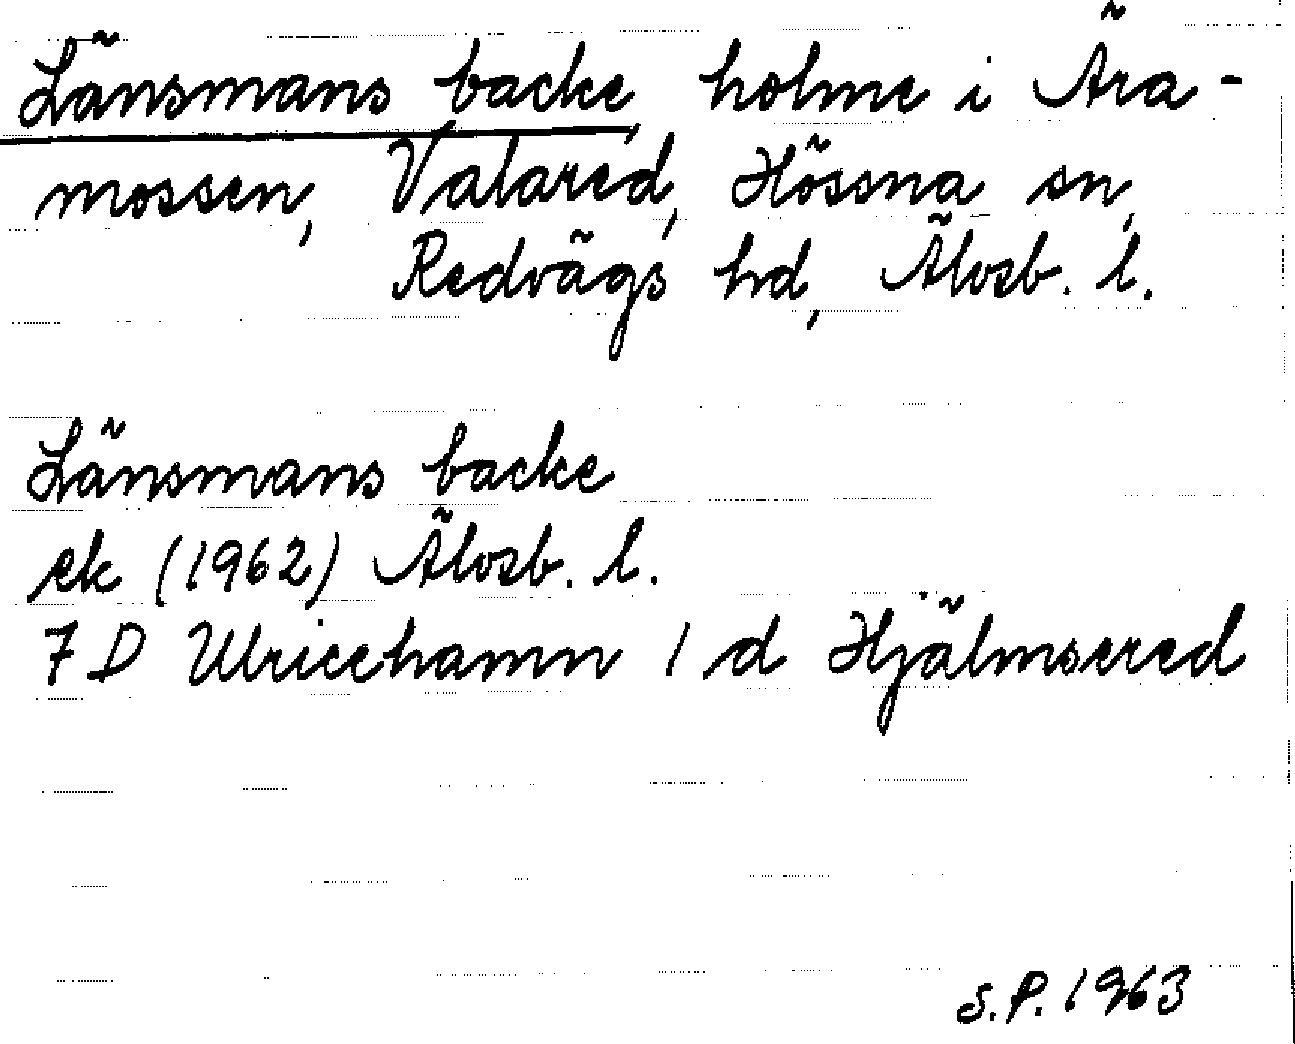 Länsmans backe, holme i Ära-
mossen, Valared, Hössna sn,
Redvägs hd, Älvsb. l.
Länsmans backe
ek (1962) Älvsb. l.
7 D Ulricehamn 1 d Hjälmsered
S.P. 1963